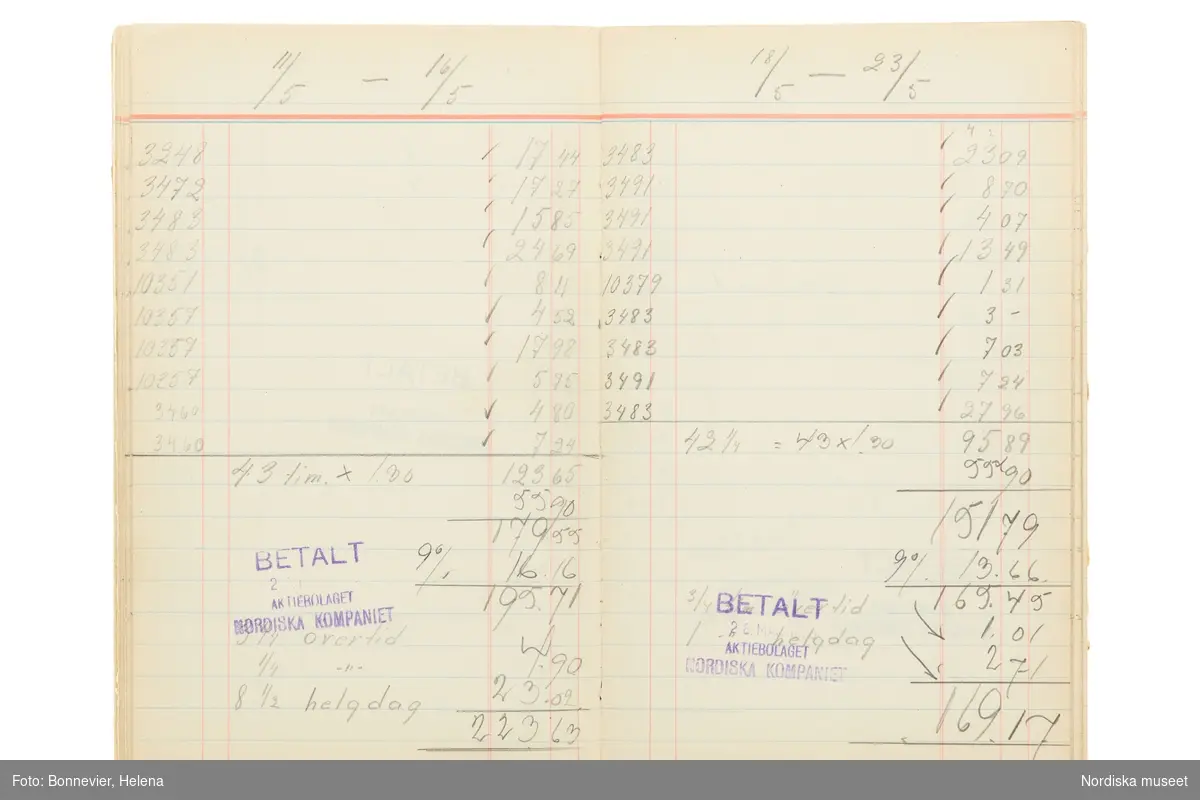 11/5 — 16/5
3248 17 44
3472 17 27
3483 15 85
3483 24 69
10351 8 11
10357 4 52
10357 17 98
10257 5 75
3460 4 80
3460 7 24
43 tim. × 1.30 123 65
55 90
179 55
9% 16.16
195.71
BETALT
2
AKTIEBOLAGET
NORDISKA KOMPANIET
övertid
1/4 -"- .90
8 1/2 helgdag 23.02
223.63
18/5 — 23/5
3483 23 09
3491 8 70
3491 4 07
3491 13 49
10379 1 31
3483 3 –
3483 7 03
3491 7 24
3483 27 96
42 1/4 = 43 × 1.30 95 89
55 90
151 79
9% 13.66
3/4 övertid 165.45
BETALT
1 helgdag 1.01
AKTIEBOLAGET
NORDISKA KOMPANIET
2 71
169.17
Foto: Bonnevier, Helena
Nordiska museet